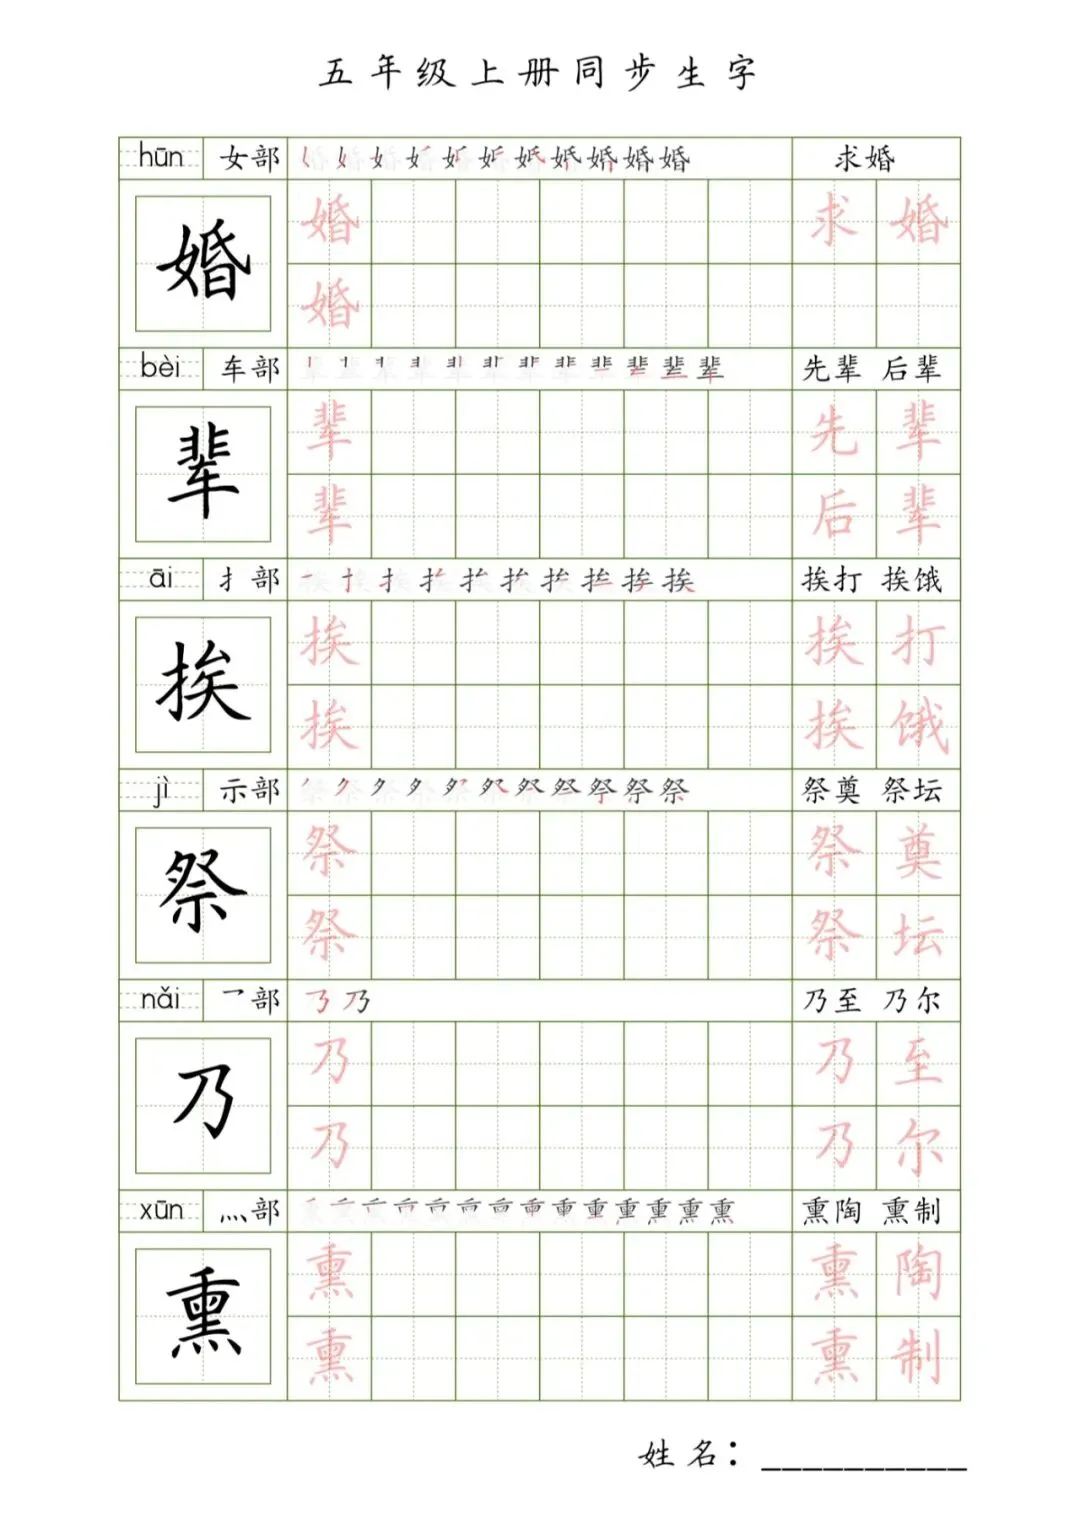 五年级上册同步生字
hūn 女部 求婚
婚 婚 求 婚
婚
bèi 车部 先辈 后辈
辈 辈 先 辈
辈 后 辈
āi 扌部 挨打 挨饿
挨 挨 挨 打
挨 挨 饿
jì 示部 祭奠 祭坛
祭 祭 祭 奠
祭 祭 坛
nǎi 乛部 乃至 乃尔
乃 乃 乃 至
乃 乃 尔
xūn 灬部 熏陶 熏制
熏 熏 熏 陶
熏 熏 制
姓名：__________